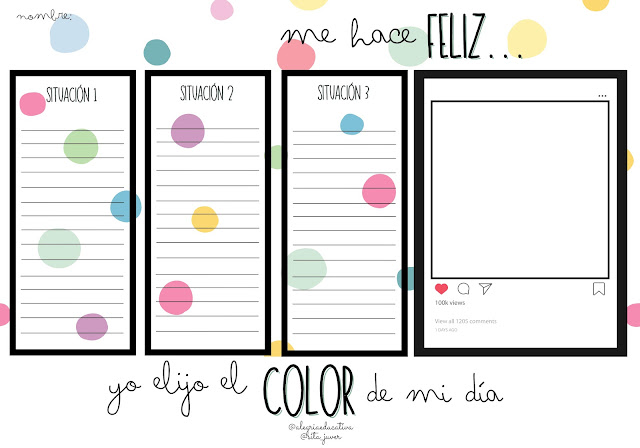 nombre:
me hace FELIZ...
SITUACIÓN 1
SITUACIÓN 2
SITUACIÓN 3
...
100k views
View all 1205 comments
1 DAYS AGO
yo elijo el COLOR de mi día
@alegriaeducativa
@rita_juver